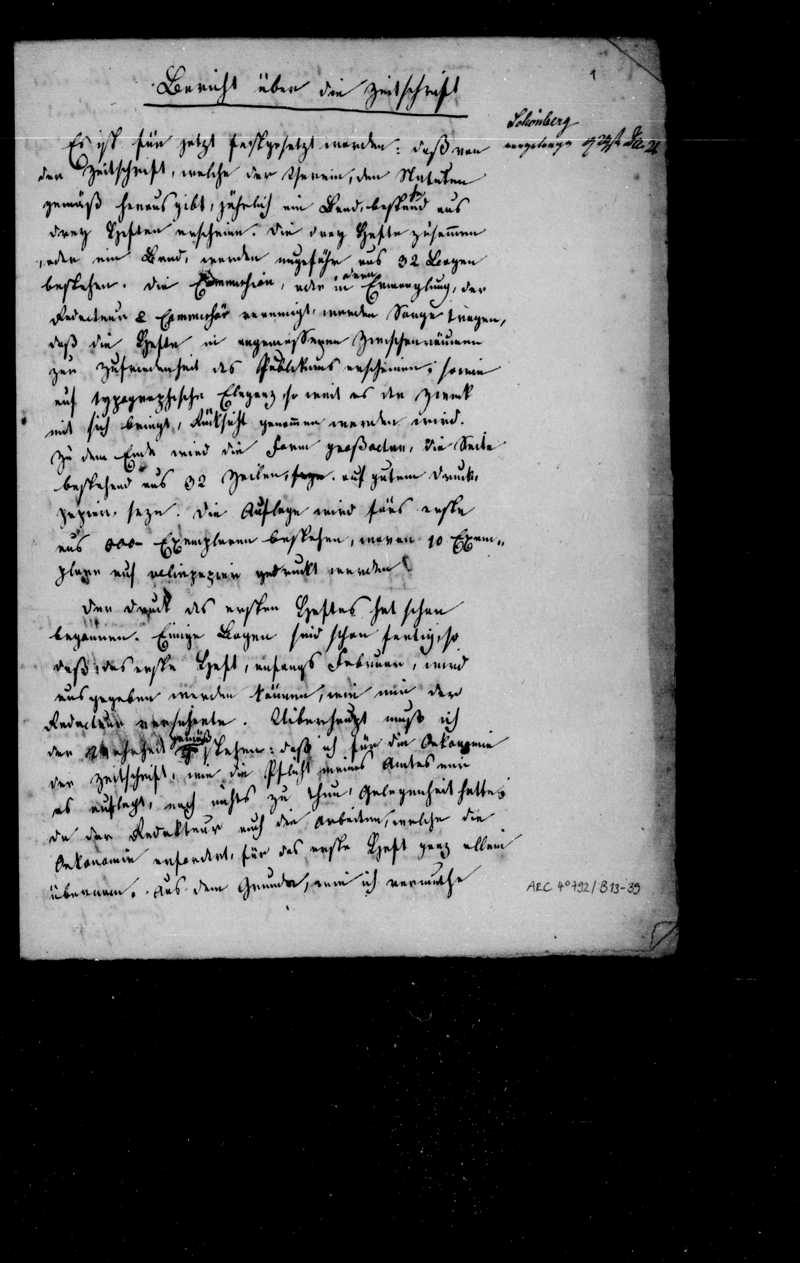 Bericht über die Zeitschrift
1
Schönberg
vorgelesen
Es ist für jetzt festgesetzt worden: daß von
der Zeitschrift, welche der Verein, den Statuten
gemäß herausgibt, jährlich ein Band, bestehend aus
drey Heften erscheine. Die drey Hefte zusammen
, oder ein Band, werden ungefähr aus 32 Bogen
bestehen. Die Commission, oder in deren Ermanglung, der
Redacteur & Commissär vereinigt, werden Sorge tragen,
daß die Hefte in angemessenen Zwischenräumen
zur Zufriedenheit des Publikums erscheinen; so wie
auf typographische Eleganz, so weit es der Zweck
mit sich bringt, Rücksicht genommen werden wird.
Zu dem Ende wird die Form großoctav, die Seite
bestehend aus 32 Zeilen, auf gutem Druck-
papier, seyn. Die Auflage wird fürs erste
aus Exemplaren bestehen, wovon 10 Exem-
plare auf velinpapier gedruckt werden
Der Druck des ersten Heftes hat schon
begonnen. Einige Bogen sind schon fertig, so
daß das erste Heft, anfangs Februar, wird
ausgegeben werden können, wie mir der
Redacteur versicherte. Ueberhaupt muß ich
der Wahrheit gemäß gestehen: daß ich für die Oekonomie
der Zeitschrift, wie die Pflicht meines Amtes mir
es auflegt, noch nichts zu thun, Gelegenheit hatte;
da der Redakteur auch die Arbeiten, welche die
Oekonomie erfordert, für das erste Heft ganz allein
übernam. Aus dem Grunde, wie ich vermuthe
ARC 4° 792/B 13-39